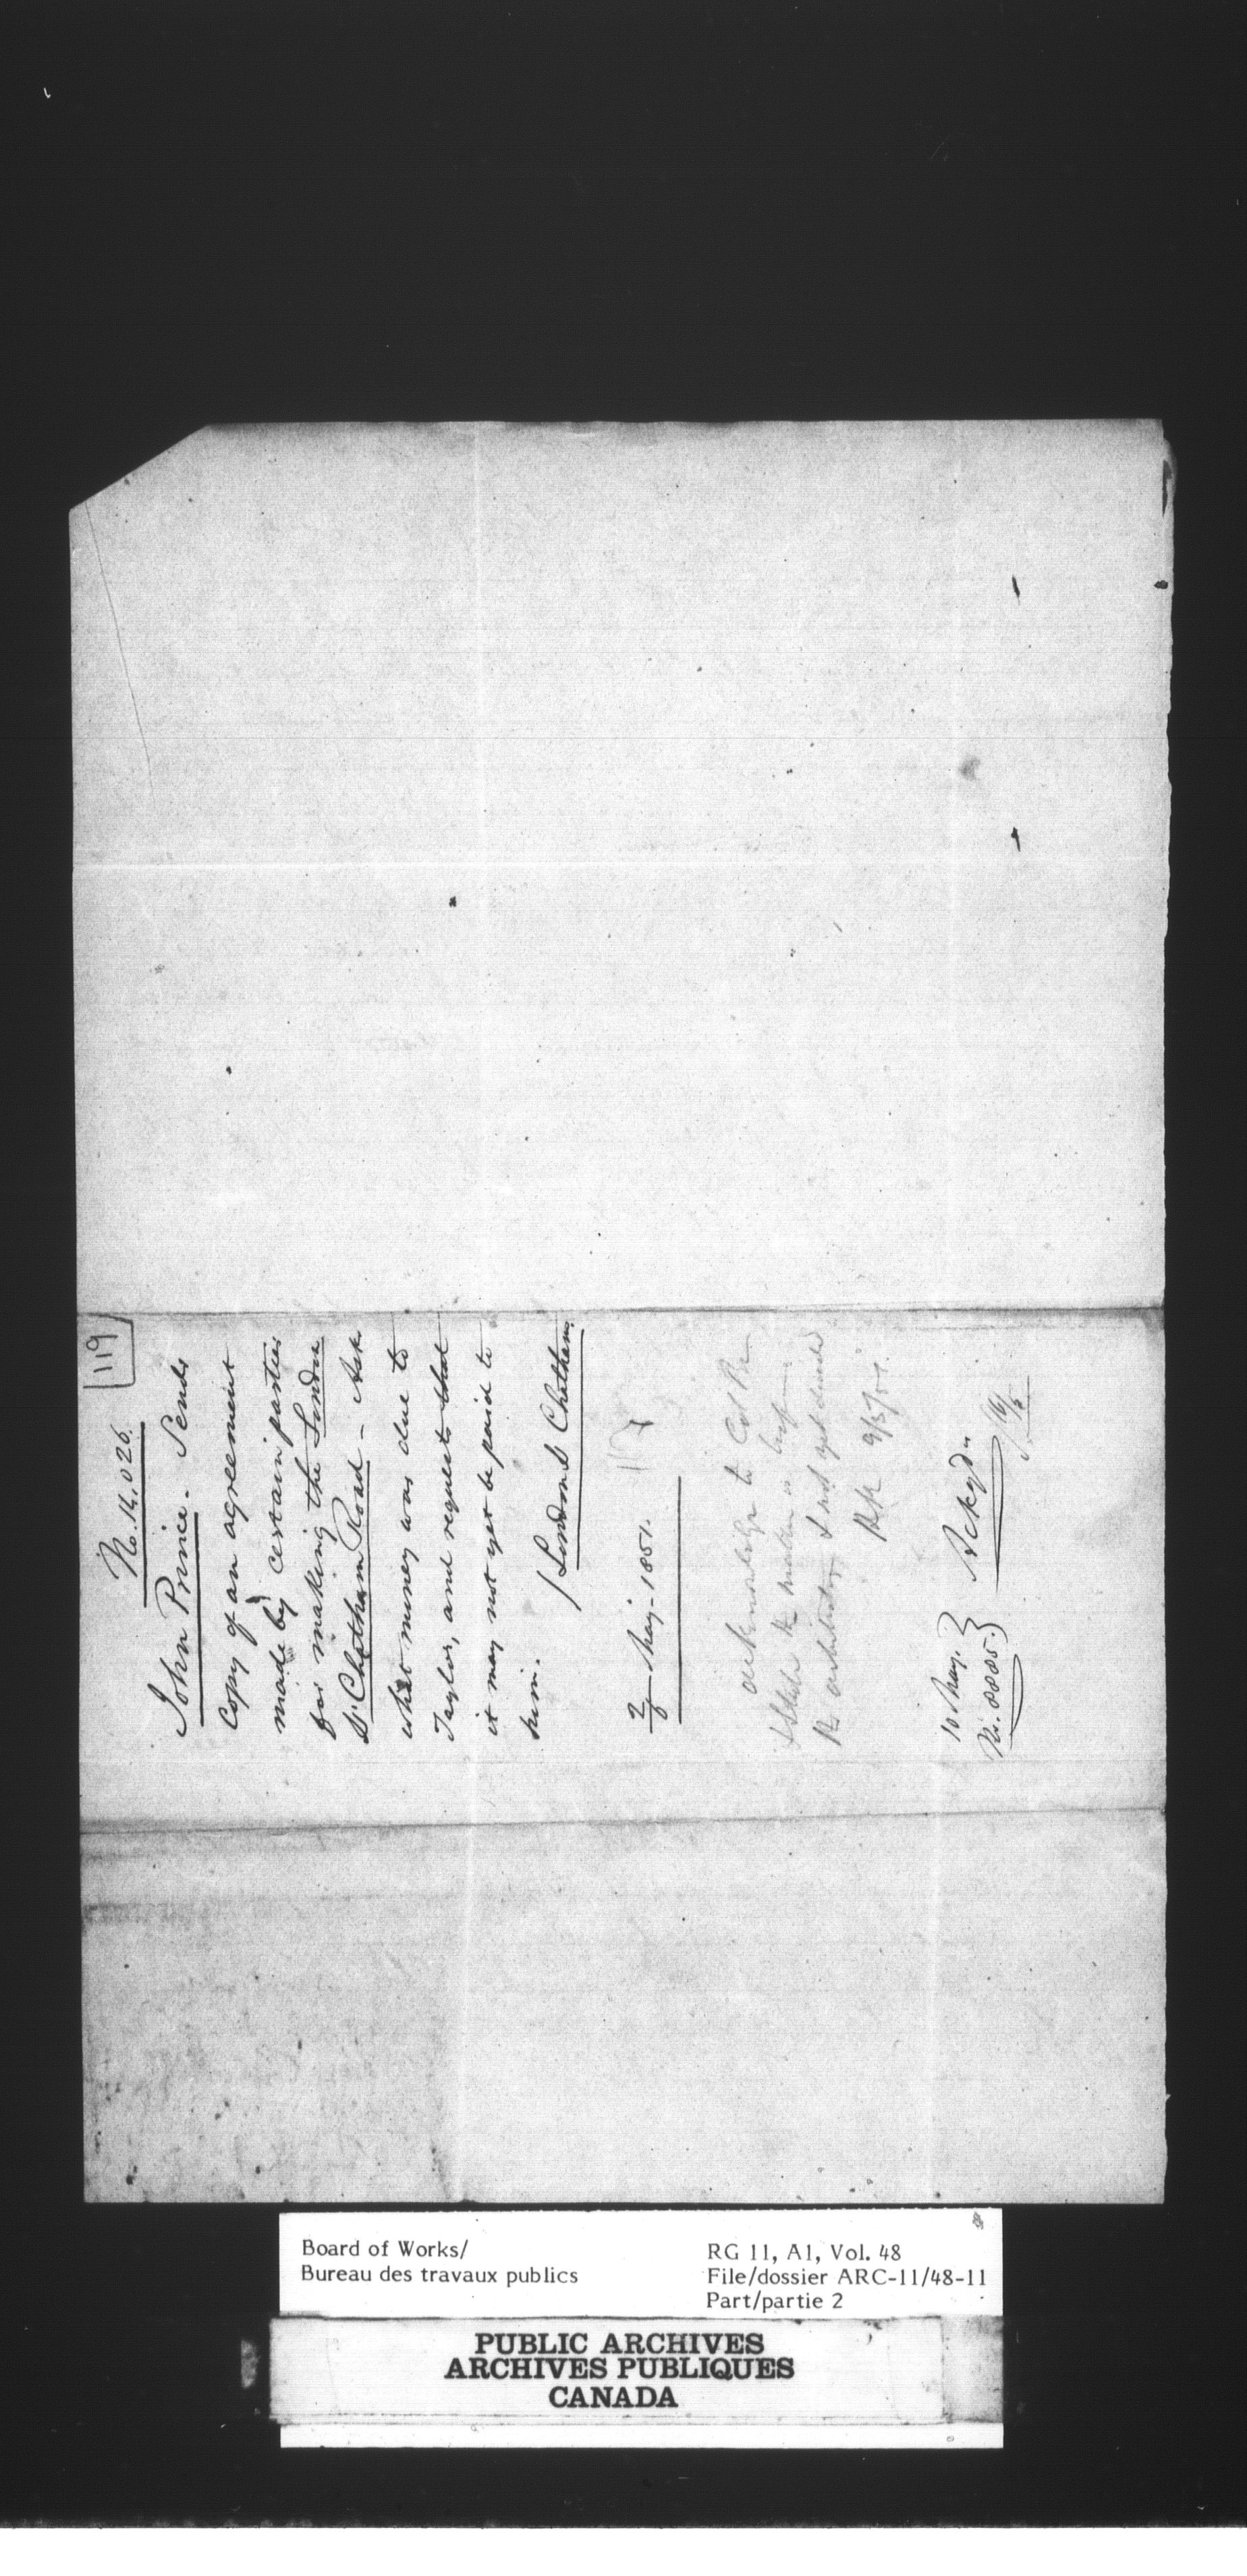 119
No. 14,026.
John Prince - Sends
Copy of an agreement
made by certain parties
for making the London
& Chatham Road - Asks
what money was due to
Taylor, and requests that
it may not yet be paid to
him.
/ London & Chatham.
2/ May - 1851.
acknowledge to Col
& state the matter is
the arbitrators & not yet
HHK 9/5/51.
10 May.
No. 8885.
Ackgdn
Board of Works/
Bureau des travaux publics
RG 11, A1, Vol. 48
File/dossier ARC-11/48-11
Part/partie 2
PUBLIC ARCHIVES
ARCHIVES PUBLIQUES
CANADA